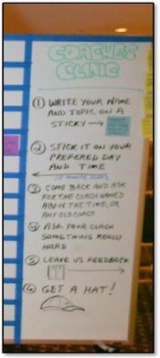 COACHES
CLINIC
① WRITE YOUR NAME
AND TOPIC ON A
STICKY →
② STICK IT ON YOUR
PREFERED DAY
AND TIME
③ COME BACK AND ASK
FOR THE COACH NAMED
ABOVE THE TIME, OR
ANY OLD COACH
④ ASK YOUR COACH
SOMETHING REALLY
HARD
⑤ LEAVE US FEEDBACK
⑥ GET A HAT!